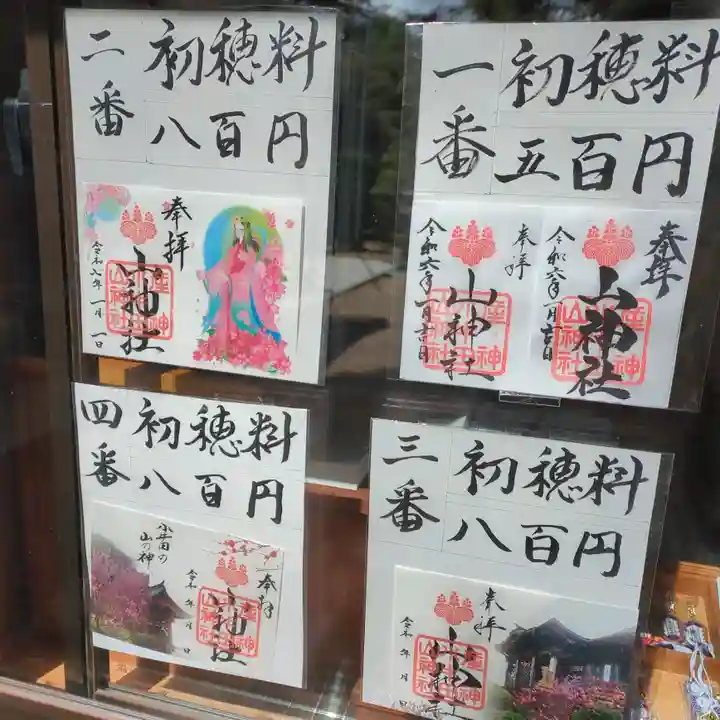 一番
初穂料
五百円
奉拝
山神社
令和六年一月吉日
奉拝
山神社
令和六年一月吉日
二番
初穂料
八百円
奉拝
山神社
令和六年一月一日
三番
初穂料
八百円
奉拝
山神社
令和 年 月
四番
初穂料
八百円
小牛田の
山の神
奉拝
山神社
令和 年 月 日